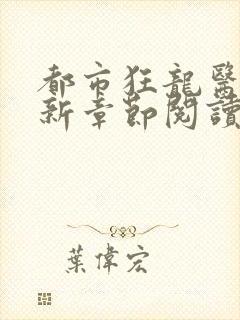 都市狂龍醫
新章節閱讀
葉偉宏